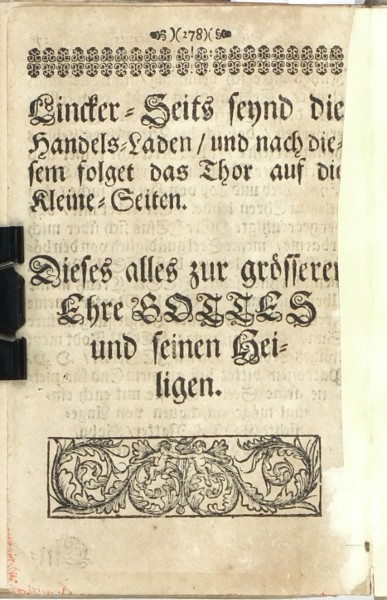 )(278)(
Lincker-Seits seynd die
Handels-Läden / und nach die-
sem folget das Thor auf die
Kleine-Seiten.
Dieses alles zur grösseren
Ehre GOTTES
und seinen Hei-
ligen.